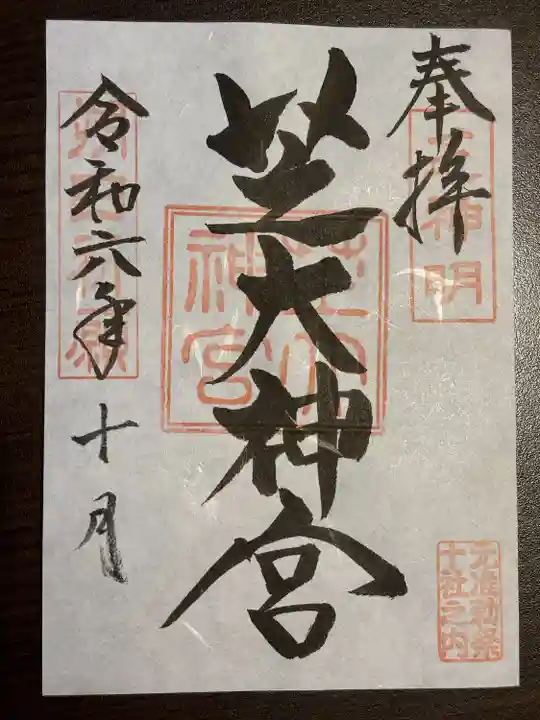 奉拝
芝大神宮
芝大
神宮
令和六年十月
元准勅祭
十社之内